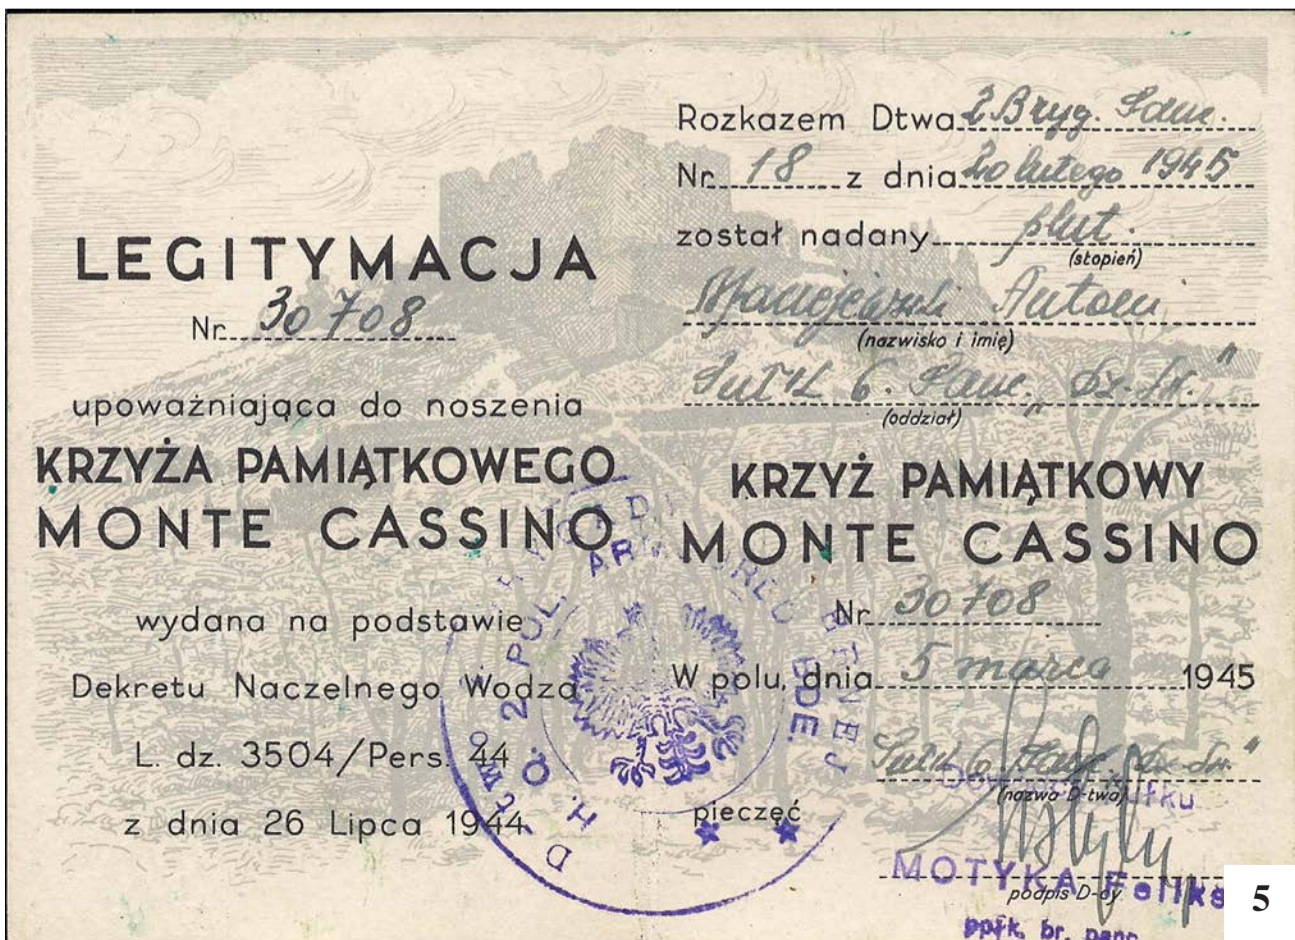 LEGITYMACJA
Nr. 30708
upoważniająca do noszenia
KRZYŻA PAMIĄTKOWEGO
MONTE CASSINO
wydana na podstawie
Dekretu Naczelnego Wodza
L. dz. 3504/Pers. 44
z dnia 26 Lipca 1944
Rozkazem Dtwa 2 Bryg. Panc.
Nr. 18 z dnia 20 lutego 1945
został nadany plut.
(stopień)
Maciejewski Antoni
(nazwisko i imię)
6. Panc. "Dz. Lw."
(oddział)
KRZYŻ PAMIĄTKOWY
MONTE CASSINO
Nr. 30708
W polu, dnia 5 marca 1945
6. Panc.
(nazwa D-twa)
pieczęć
MOTYKA Feliks
podpis D-cy
ppłk. br. panc.
H. Q. 2 POL. ARMOURED BDE.
5